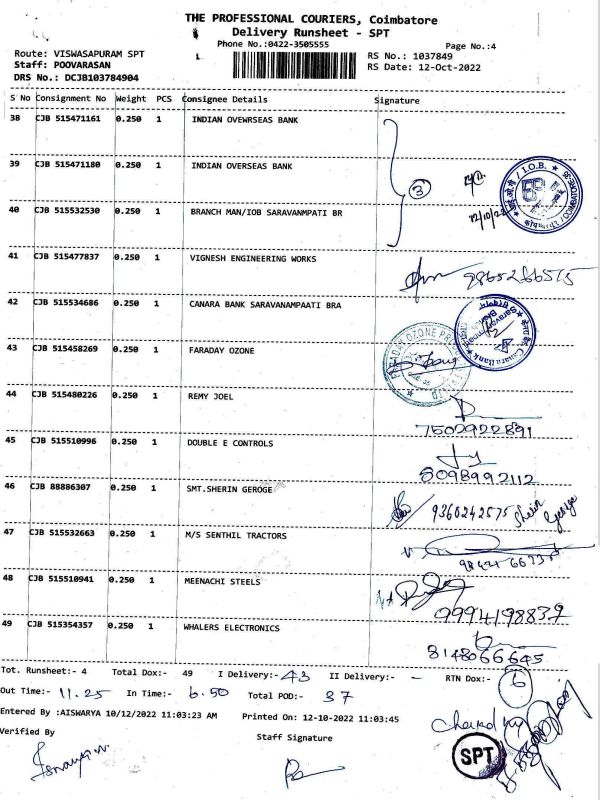 THE PROFESSIONAL COURIERS, Coimbatore
Delivery Runsheet - SPT
Phone No.:0422-3505555
Page No.:4
Route: VISWASAPURAM SPT
RS No.: 1037849
Staff: POOVARASAN
RS Date: 12-Oct-2022
DRS No.: DCJB103784904
S No Consignment No Weight PCS Consignee Details Signature
38 CJB 515471161 0.250 1 INDIAN OVEWRSEAS BANK
39 CJB 515471180 0.250 1 INDIAN OVERSEAS BANK
3
I.O.B.
40 CJB 515532530 0.250 1 BRANCH MAN/IOB SARAVANMPATI BR
12/10/22
41 CJB 515477837 0.250 1 VIGNESH ENGINEERING WORKS
9865266515
42 CJB 515534686 0.250 1 CANARA BANK SARAVANAMPAATI BRA
Canara Bank
43 CJB 515458269 0.250 1 FARADAY OZONE
FARADAY OZONE
44 CJB 515480226 0.250 1 REMY JOEL
7502922891
45 CJB 515510996 0.250 1 DOUBLE E CONTROLS
8098992112
46 CJB 88886307 0.250 1 SMT.SHERIN GEROGE
9360242575 Sherin George
47 CJB 515532663 0.250 1 M/S SENTHIL TRACTORS
48 CJB 515510941 0.250 1 MEENACHI STEELS
9994198839
49 CJB 515354357 0.250 1 WHALERS ELECTRONICS
8148066645
Tot. Runsheet:- 4 Total Dox:- 49 I Delivery:- 43 II Delivery:- - RTN Dox:- 6
Out Time:- 11.25 In Time:- 6.50 Total POD:- 37
Entered By :AISWARYA 10/12/2022 11:03:23 AM Printed On: 12-10-2022 11:03:45
Verified By
Staff Signature
SPT